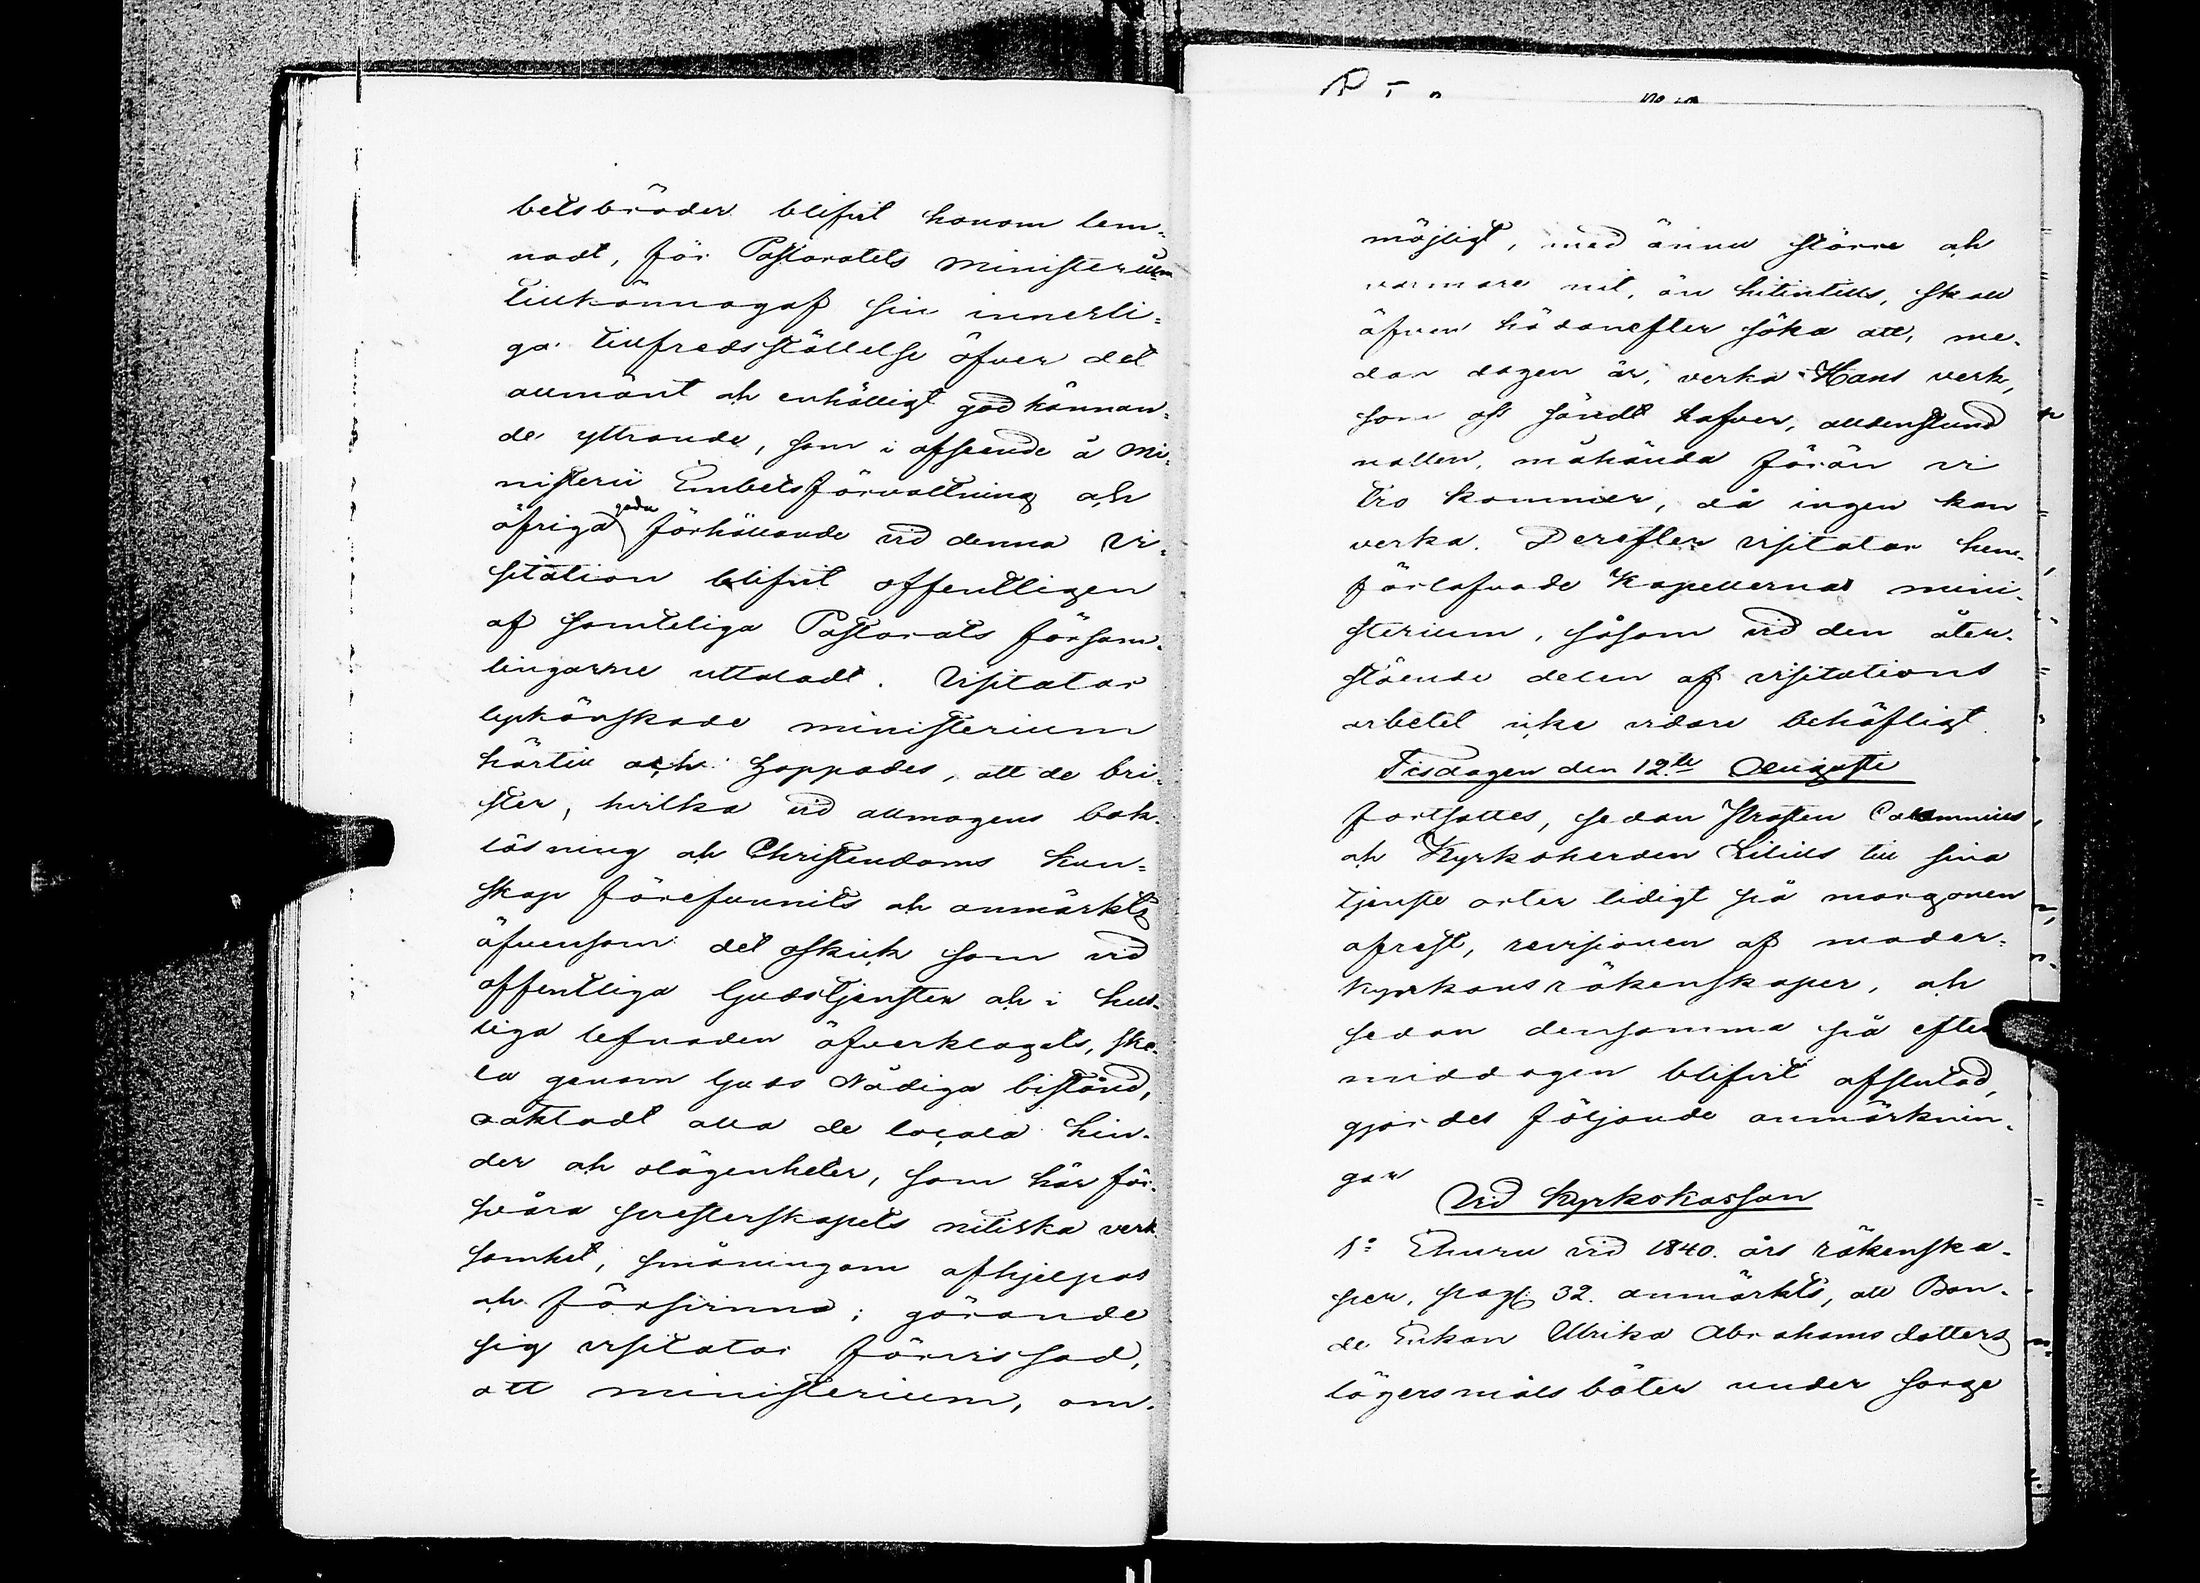 betsbröder blifvit honom lem-
nadt, för Pastoratets Ministerium
tillkännagaf sin innerli-
ga tillfredsställelse öfver det
allmänt och enhälligt godkännan-
de yttrande, som i afseende å Mi-
nisterii Embetsförvaltning och
öfriga goda förhållande vid denna Vi-
sitation blifvit offentligen
af samteliga Pastorats försam-
lingarne uttaladt. Visitator
lyckönskade ministerium
härtill och hoppades, att de bri-
ster, hvilka vid allmogens bok-
läsning och Christendoms kun-
skap förefunnits och anmärkts
äfvensom det oskick som vid
offentliga Gudstjensten och i hus-
liga lefnaden öfverklagats, sko-
la genom Guds Nådiga bistånd,
oaktadt alla de locala hin-
der och olägenheter, som här för-
svåra presterskapets nitiska verk
samhet, småningom afhjelpas
och försvinna; görande
sig visitator förvissad,
att ministerium, om
möjligt, med ännu större och
varmare nit, än hitintills, skall
äfven hädanefter söka att, me-
dan dagen är, verka Hans verk,
som oss sändt hafver, alldenstund
natten, måhända förän vi
tro kommer, då ingen kan
verka. Derefter visitator hem-
förlofvade Kapellernas mini-
sterium, såsom vid den åter-
stående delen af visitations
arbetet icke vidare behöfligt.
Tisdagen den 12te Augusti
fortsattes, sedan Prosten Calamnius
och Kyrkoherden Lilius till sina
tjenste orter tidigt på morgonen
afrest, revisionen af moder-
kyrkans räkenskaper, och
sedan densamma på efter
middagen blifvit afslutad,
gjordes följande anmärknin-
gar
Vid Kyrkokassan
1o Ehuru vid 1840. års räkenska-
per, pag: 32. anmärkts, att Bon-
de Enkan Ulrika Abrahamsdotters
lägersmåls böter under sorge